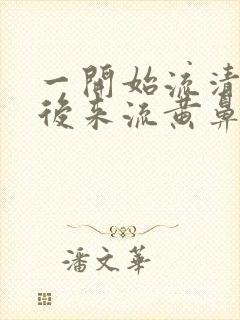 一開始流清
後來流黃鼻
潘文華